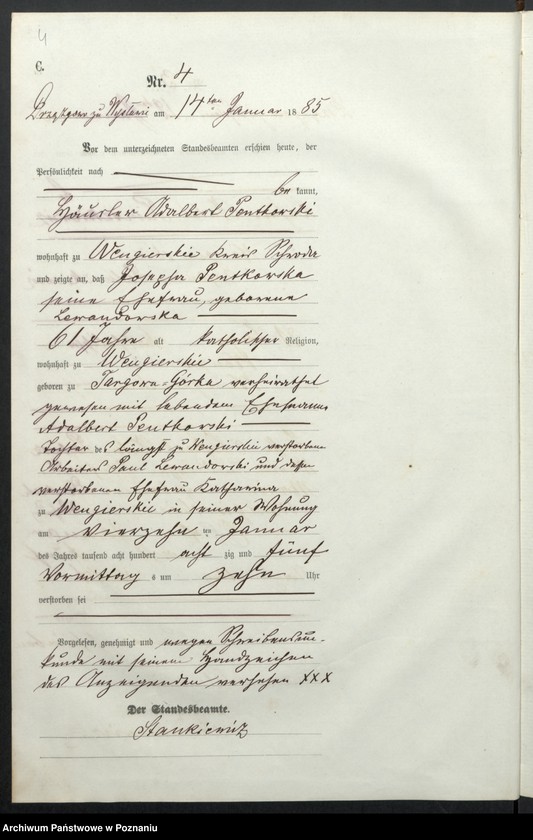 4
C.
Nr. 4
am 14ten Januar 1885
Vor dem unterzeichneten Standesbeamten erschien heute, der
Persönlichkeit nach
be kannt,
Häusler Adalbert Pentkorski
wohnhaft zu Wengierskie Kreis Schroda
und zeigte an, daß Josepha Pentkowska
seine Ehefrau, geborene
Lewandorska
61 Jahre alt katholischer Religion,
wohnhaft zu Wengierskie
geboren zu Targowa-Górka verheirathet
gewesen mit lebendem Ehemann
Adalbert Pentkorski
Tochter des längst zu Wengierskie verstorbenen
Arbeiters Paul Lewandorski und dessen
verstorbenen Ehefrau Katharina
zu Wengierskie in seiner Wohnung
am vierzehn ten Januar
des Jahres tausend acht hundert acht zig und fünf
Vormittag s um zehn Uhr
verstorben sei
Vorgelesen, genehmigt und wegen Schreibensun-
kunde mit seinem Handzeichen
des Anzeigenden versehen XXX
Der Standesbeamte.
Stankiewicz
Archiwum Państwowe w Poznaniu